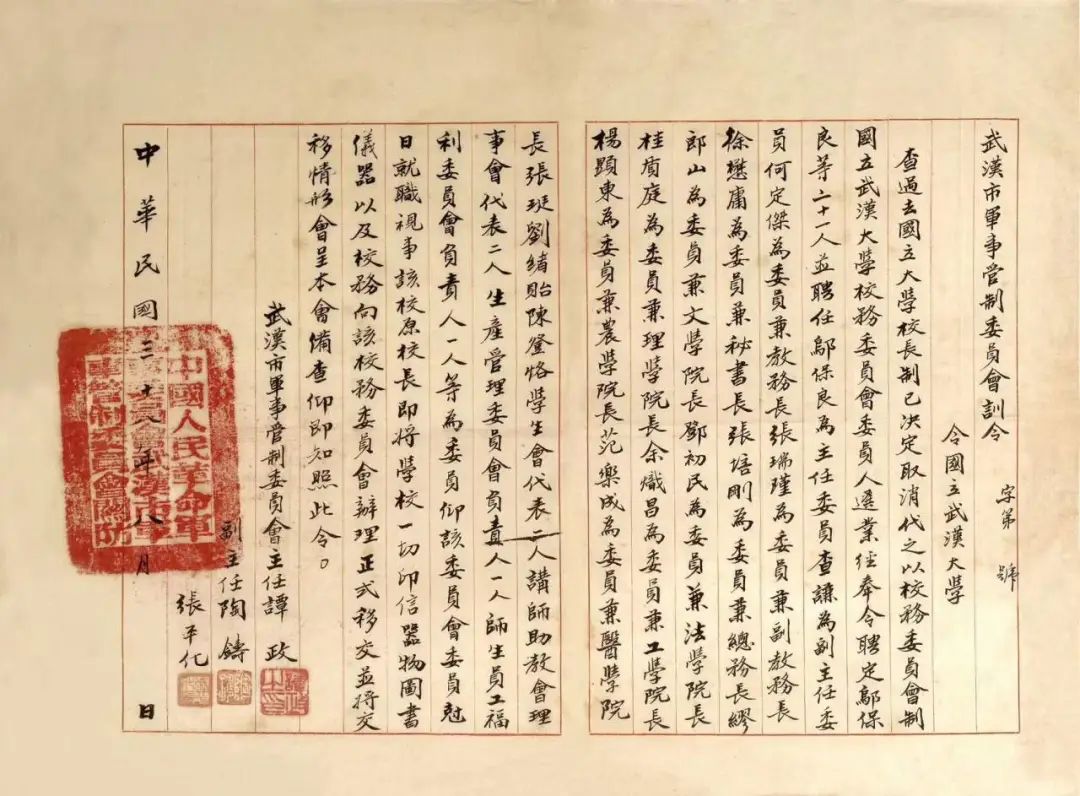 武漢市軍事管制委員會訓令
字第　號
令國立武漢大學
查過去國立大學校長制已決定取消代之以校務委員會制
國立武漢大學校務委員會委員人選業經奉令聘定鄔保
良等二十一人並聘任鄔保良為主任委員查謙為副主任委
員何定傑為委員兼教務長張瑞瑾為委員兼副教務長
徐懋庸為委員兼秘書長張培剛為委員兼總務長繆
郎山為委員兼文學院長鄧初民為委員兼法學院長
桂質庭為委員兼理學院長余熾昌為委員兼工學院長
楊顯東為委員兼農學院長范樂成為委員兼醫學院
長張珽劉緒貽陳登恪學生會代表二人講師助教會理
事會代表二人生產管理委員會負責人一人師生員工福
利委員會負責人一人等為委員仰該委員會委員尅
日就職視事該校原校長即將學校一切印信器物圖書
儀器以及校務向該校務委員會辦理正式移交並將交
移情形會呈本會備查仰即知照此令。
武漢市軍事管制委員會主任譚政
副主任陶鑄
張平化
中華民國三十八年八月　日
中國人民革命軍